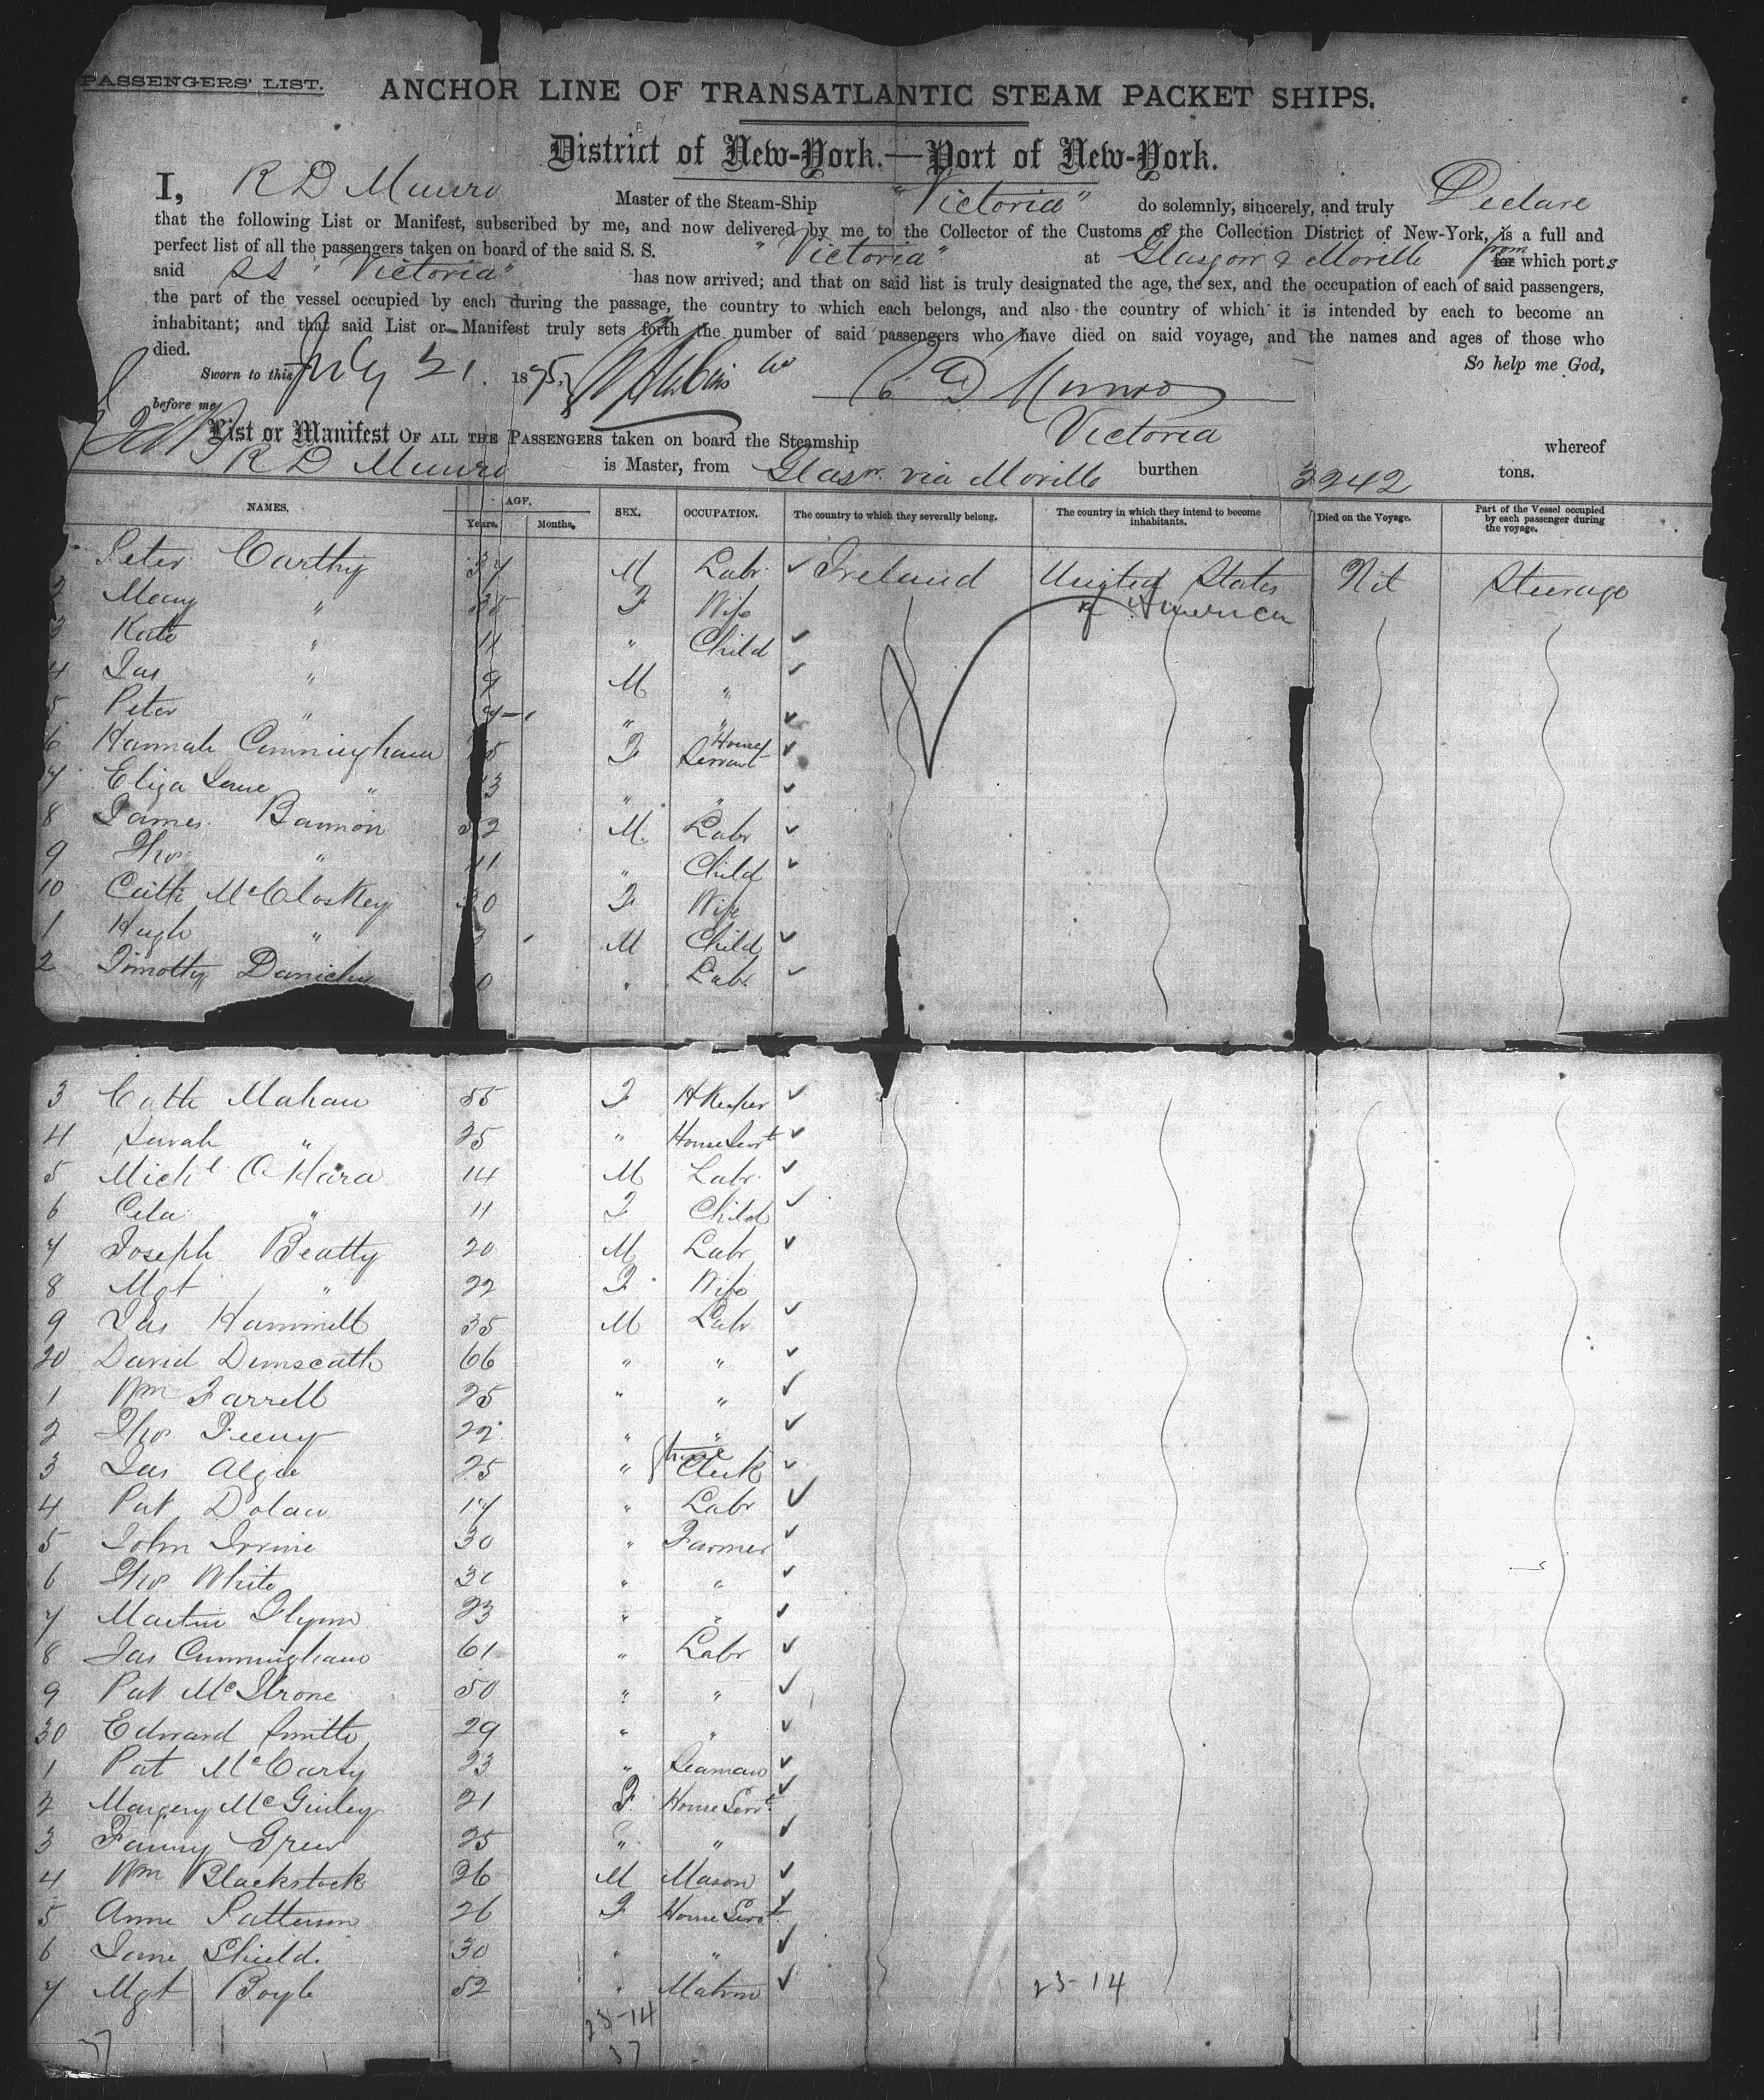 PASSENGERS' LIST. ANCHOR LINE OF TRANSATLANTIC STEAM PACKET SHIPS.
District of New-York.—Port of New-York.
I, R D Munro Master of the Steam-Ship "Victoria" do solemnly, sincerely, and truly Declare
that the following List or Manifest, subscribed by me, and now delivered by me to the Collector of the Customs of the Collection District of New-York, is a full and
perfect list of all the passengers taken on board of the said S. S. "Victoria" at Glasgow & Moville from for which ports
said SS "Victoria" has now arrived; and that on said list is truly designated the age, the sex, and the occupation of each of said passengers,
the part of the vessel occupied by each during the passage, the country to which each belongs, and also the country of which it is intended by each to become an
inhabitant; and that said List or Manifest truly sets forth the number of said passengers who have died on said voyage, and the names and ages of those who
died. So help me God,
Sworn to this July 21. 1875,
before me R D Munro
List or Manifest OF ALL THE PASSENGERS taken on board the Steamship Victoria whereof
R D Munro is Master, from Glasw. via Moville burthen 3242 tons.
NAMES. AGE. Years. Months. SEX. OCCUPATION. The country to which they severally belong. The country in which they intend to become inhabitants. Died on the Voyage. Part of the Vessel occupied by each passenger during the voyage.
Peter Carthy 37 M Labr Ireland United States of America Nil Steerage
2 Mary " 35 F Wife
3 Kate " 11 " Child
4 Jas " 9 M "
5 Peter " 7 " "
6 Hannah Cunningham 5 F House Servant
7 Eliza Jane " 3 " "
8 James Bannon 2 M Labr
9 Thos " 11 " Child
10 Cath McCloskey 30 F Wife
1 Hugh " 3 M Child
2 Timothy 0 " Labr
3 Cath Mahan 55 F H Keeper
4 Sarah " 25 " House Servt
5 Michl O'Hara 14 M Labr
6 Cela " 11 F Child
7 Joseph Beatty 20 M Labr
8 Mgt " 22 F Wife
9 Jas Hammill 35 M Labr
20 David Dunscath 66 " "
1 Wm Farrell 25 " "
2 Thos Feeny 22 " "
3 Jas Algie 25 " Clerk
4 Pat Dolan 17 " Labr
5 John Irvine 30 " Farmer
6 Thos White 30 " "
7 Martin Flynn 23 " "
8 Jas Cunningham 61 " Labr
9 Pat McIlrone 50 " "
30 Edward Smith 29 " "
1 Pat McCarty 23 " Seaman
2 Margery McGinley 21 F House Servt
3 Fanny Grew 25 " "
4 Wm Blackstock 26 M Mason
5 Anne Patterson 26 F House Servt
6 Jane Shield. 30 " "
7 Mgt Boyle 52 " Matron 23-14
23-14
37 37